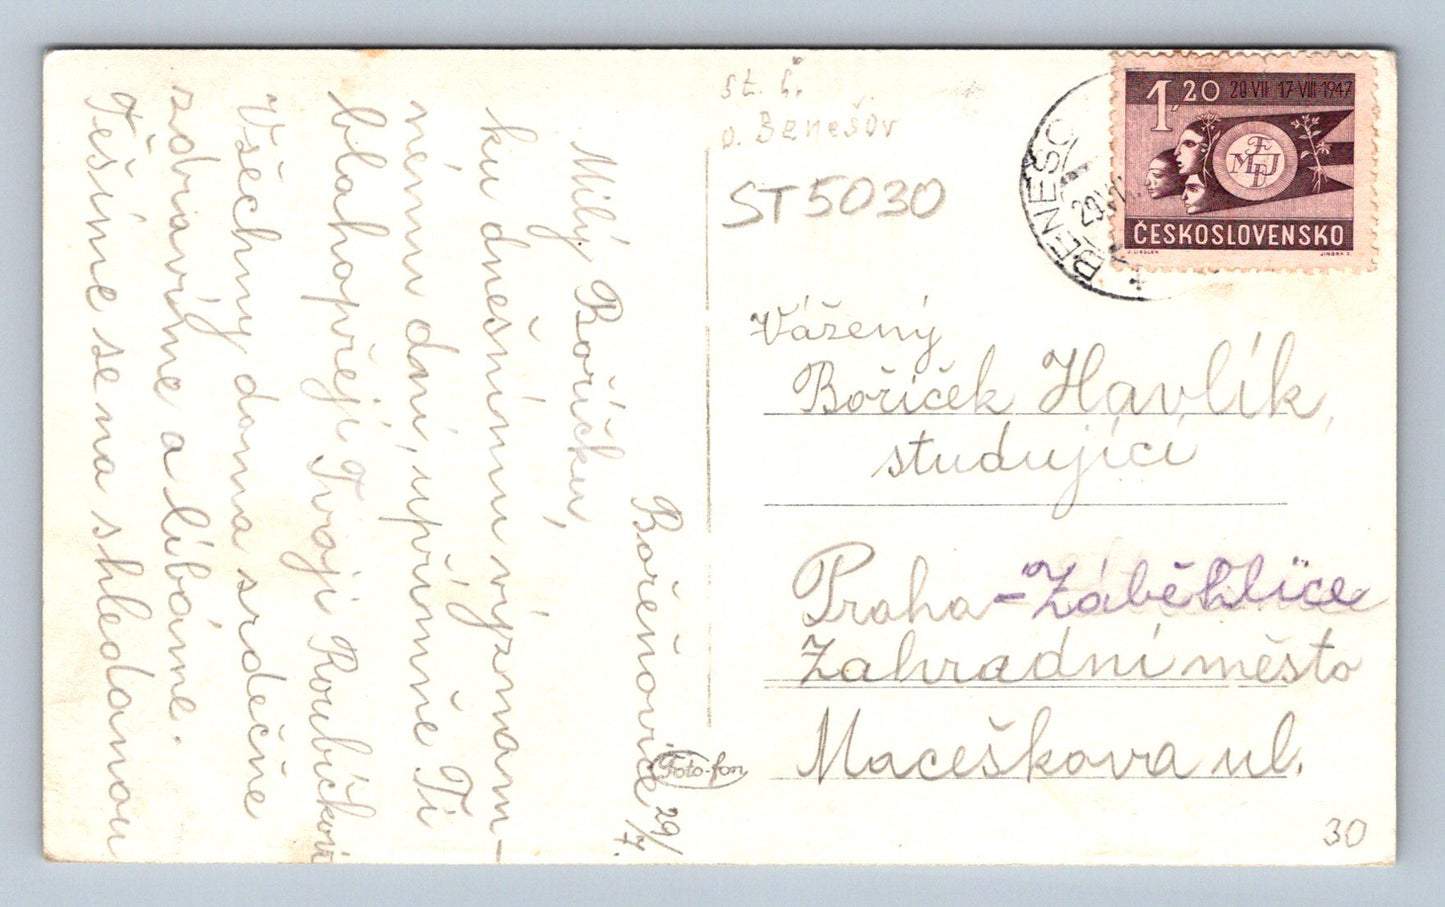 Bořeňovice 29/7.
Milý Boříčku,
ku dnešnímu význam-
nému dni, upřímně Ti
blahopřejí Tvoji Roubíčkovi
Všechny doma srdečně
zdravíme a líbáme.
Těšíme se na shledanou
st. č.
p. Benešov
ST5030
BENEŠO
1,20 20·VII 17·VIII·1947
FMJD
ČESKOSLOVENSKO
JINDRA S.
Vážený
Bořiček Havlík,
studující
Praha-Záběhlice
Zahradní město
Maceškova ul.
Foto-fon
30